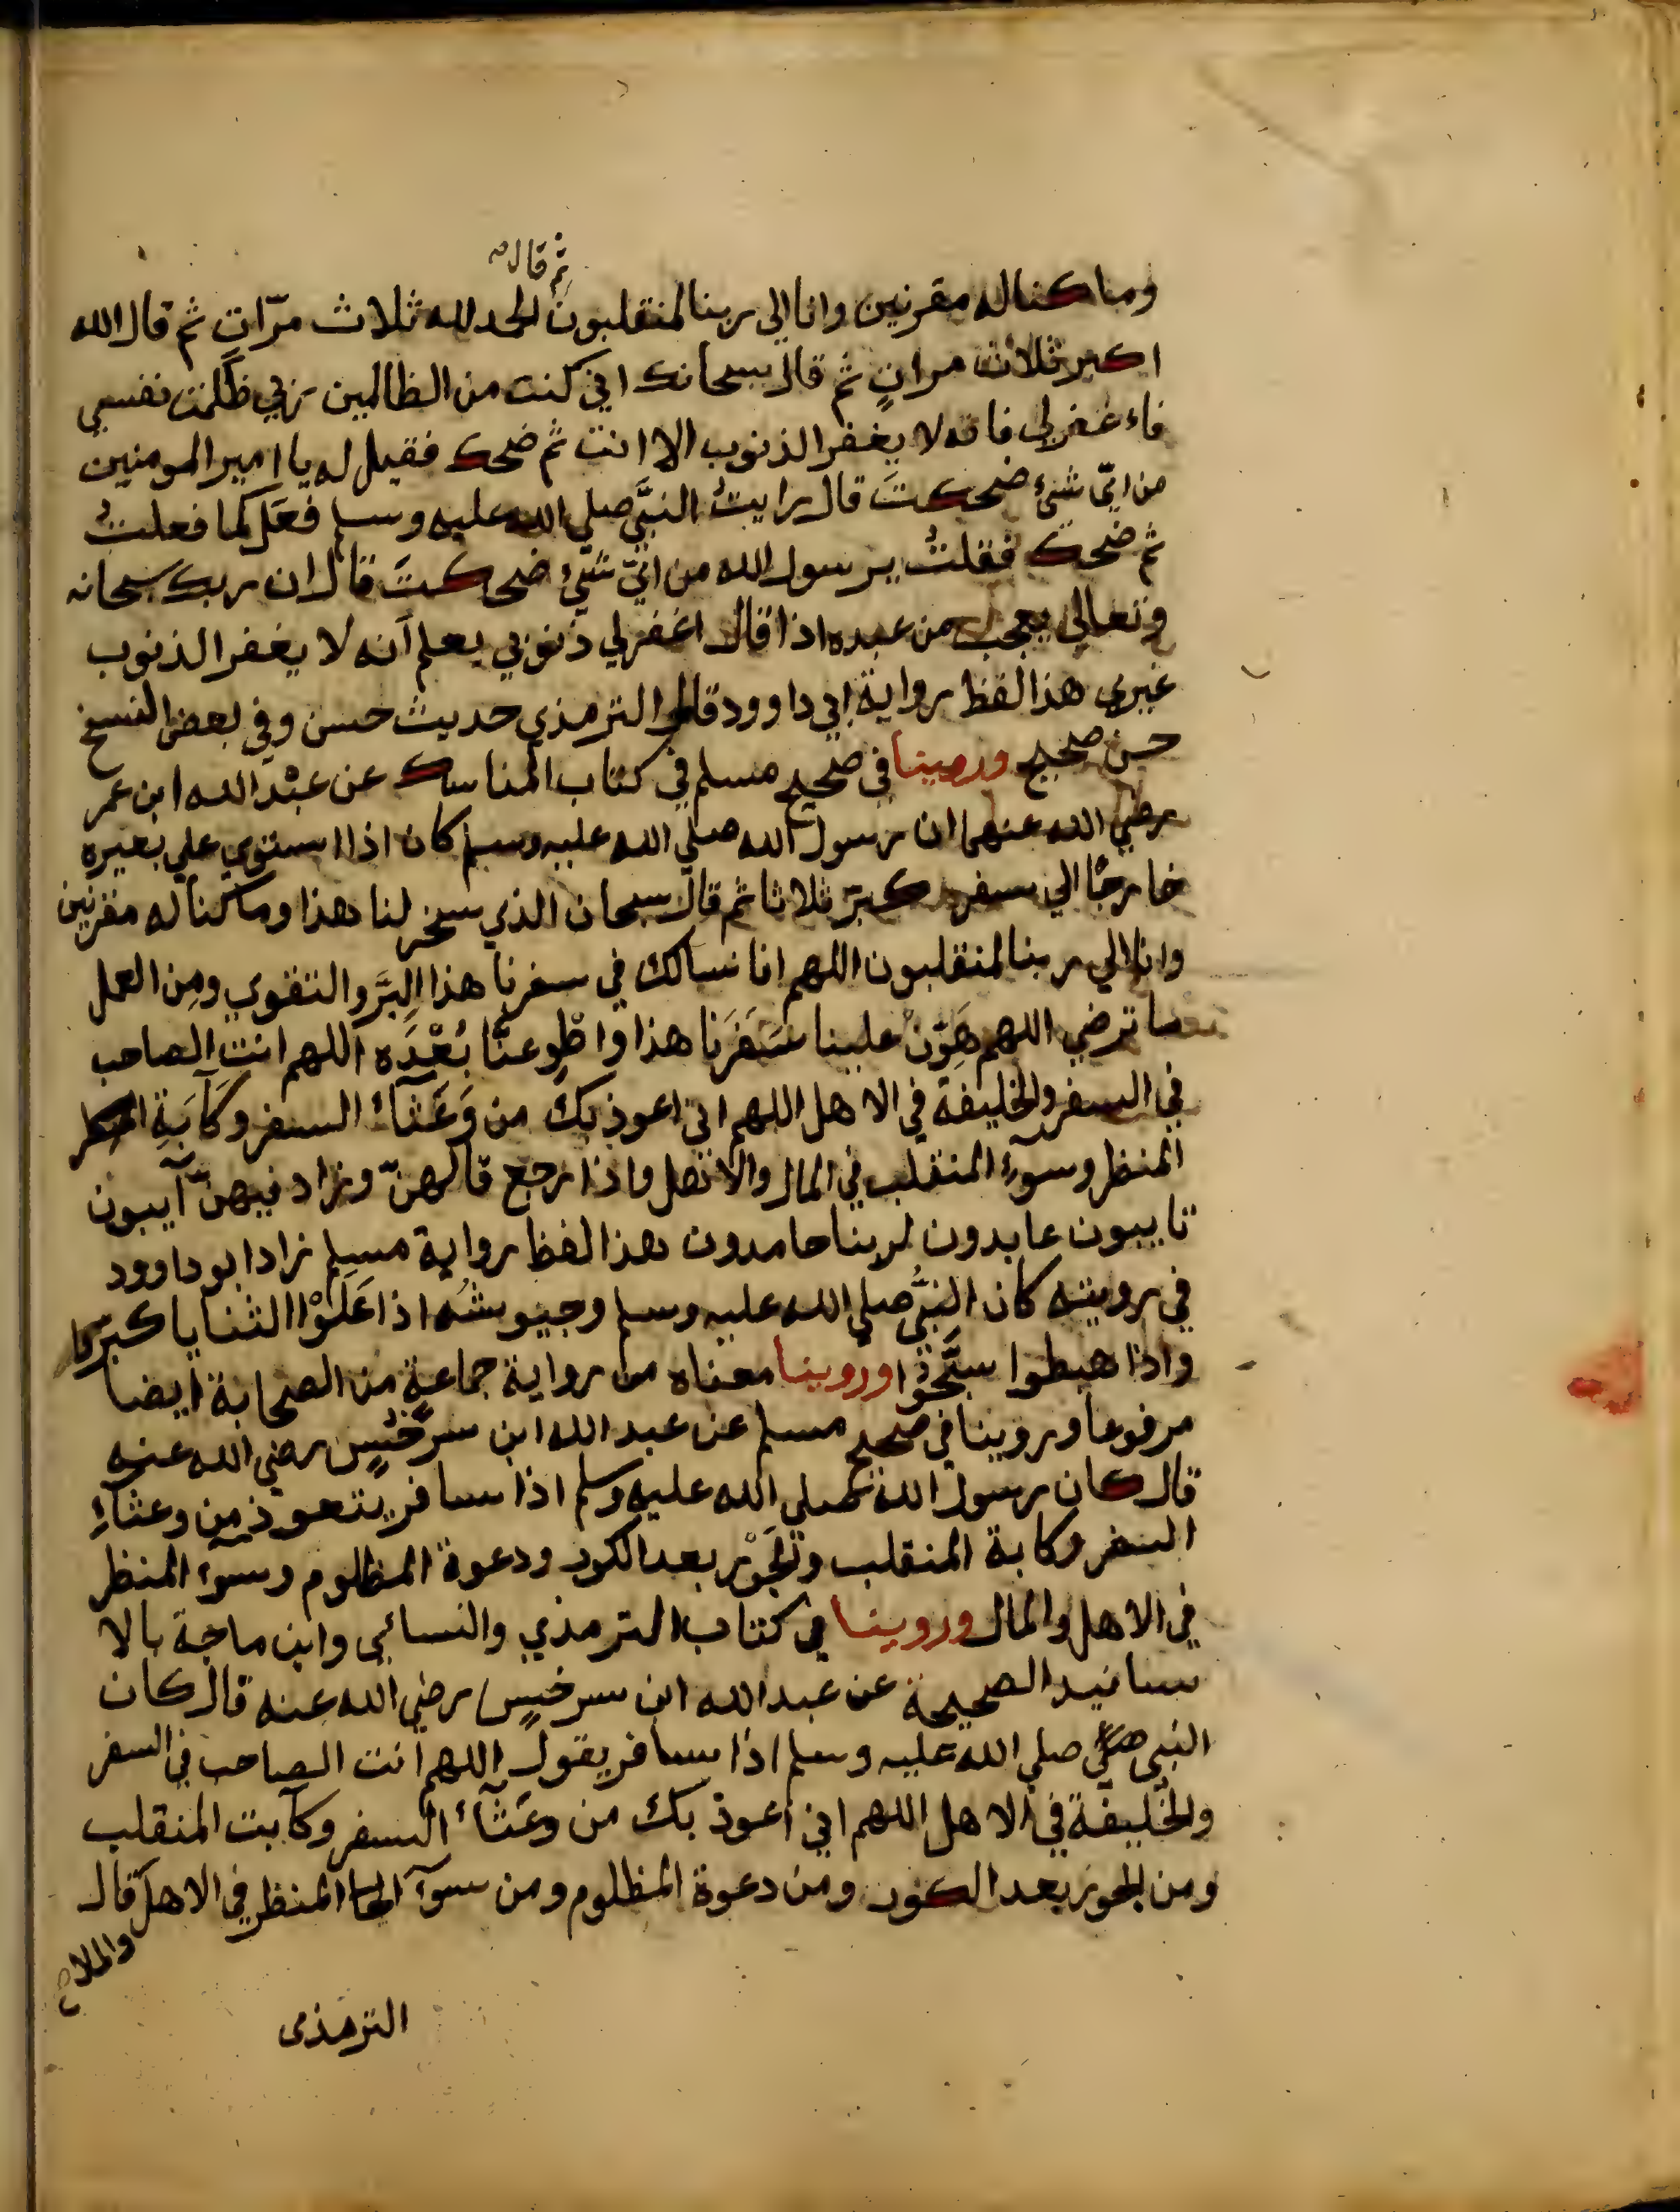 ثم قال
وما كنا له مقرنين وانا الي ربنا لمنقلبون الحمد لله ثلاث مرّاتٍ ثم قال الله
اكبر ثلاث مراتٍ ثم قال سبحانك اني كنت من الظالمين ربي ظَلمت نفسي
فاء غفرلي فانه لا يغفر الذنوب الا انت ثم ضحك فقيل له يا امير المومنين
من ايّ شيءٍ ضحكتَ قال رايتُ النبيَّ صلي الله عليه وسلم فعَل كما فعلتُ
ثم ضحك فقلتُ يرسول الله من ايّ شيءٍ ضحكتَ قال ان ربك سبحانه
وتعالي يعجب من عبده اذا قال اغفرلي ذنوبي يعلم اَنه لا يغفر الذنوب
غيري هذا لفظ رواية ابي داوود قال الترمذي حديث حسن وفي بعض النسخ
حسن صحيح وروينا في صحيح مسلم في كتاب المناسك عن عبْد الله ابن عمر
رضي الله عنهما ان رسول الله صلي الله عليه وسلم كان اذا استوي علي بعيره
خارجًا الي سفر كبرّ ثلاثا ثم قال سبحان الذي سخر لنا هذا وما كنا له مقرنين
وانا الي ربنا لمنقلبون اللهم انا نسالك في سفرنا هذا البِرَّ والتقوي ومِن العمل
ما ترضي اللهم هَوِّنْ علينا سَفَرَنا هذا واطْوِ عنَّا بُعْدَه اللهم انت الصاحب
في السفر والخليفة في الاهل اللهم اني اعوذ بك من وَعَثآء السفر وكَآبَةِ
المنظر وسوٓء المنقلب في المال والاهل واذا رجع قالهنّ وزاد فيهنّ آيبون
تايبون عابدون لربنا حامدون هذا لفظ رواية مسلم زاد ابو داوود
في رويته كان النبيُّ صلي الله عليه وسلم وجيوشُه اذا عَلَوْا الثنايا كبرّوا
واذا هبطوا سبَّحوْا وروينا معناه من رواية جماعةٍ من الصحابة ايضا
مرفوعا وروينا في صحيح مسلم عن عبد الله ابن سرْخَيسٍ رضي الله عنه
قال كان رسول الله صلي الله عليه وسلم اذا سافر يتعوذ مِن وعثآءِ
السفر وكابة المنقلب والحَوْر بعد الكور ودعوة المظلوم وسوٓء المنظر
في الاهل والمال وروينا في كتاب الترمذي والنسائي وابن ماجة بالا
سانيد الصحيحة عن عبد الله ابن سرخيسٍ رضي الله عنه قال كان
النبي صلي صلي الله عليه وسلم اذا سافر يقول اللهم انت الصاحب في السفر
والخليفة في الاهل اللهم اني اعوذ بك من وعَثآء السفر وكآبت المنقلب
ومن الحور بعد الكور ومن دعوة المظلوم ومن سوٓء المنظر في الاهل قال
والملا
الترمذى